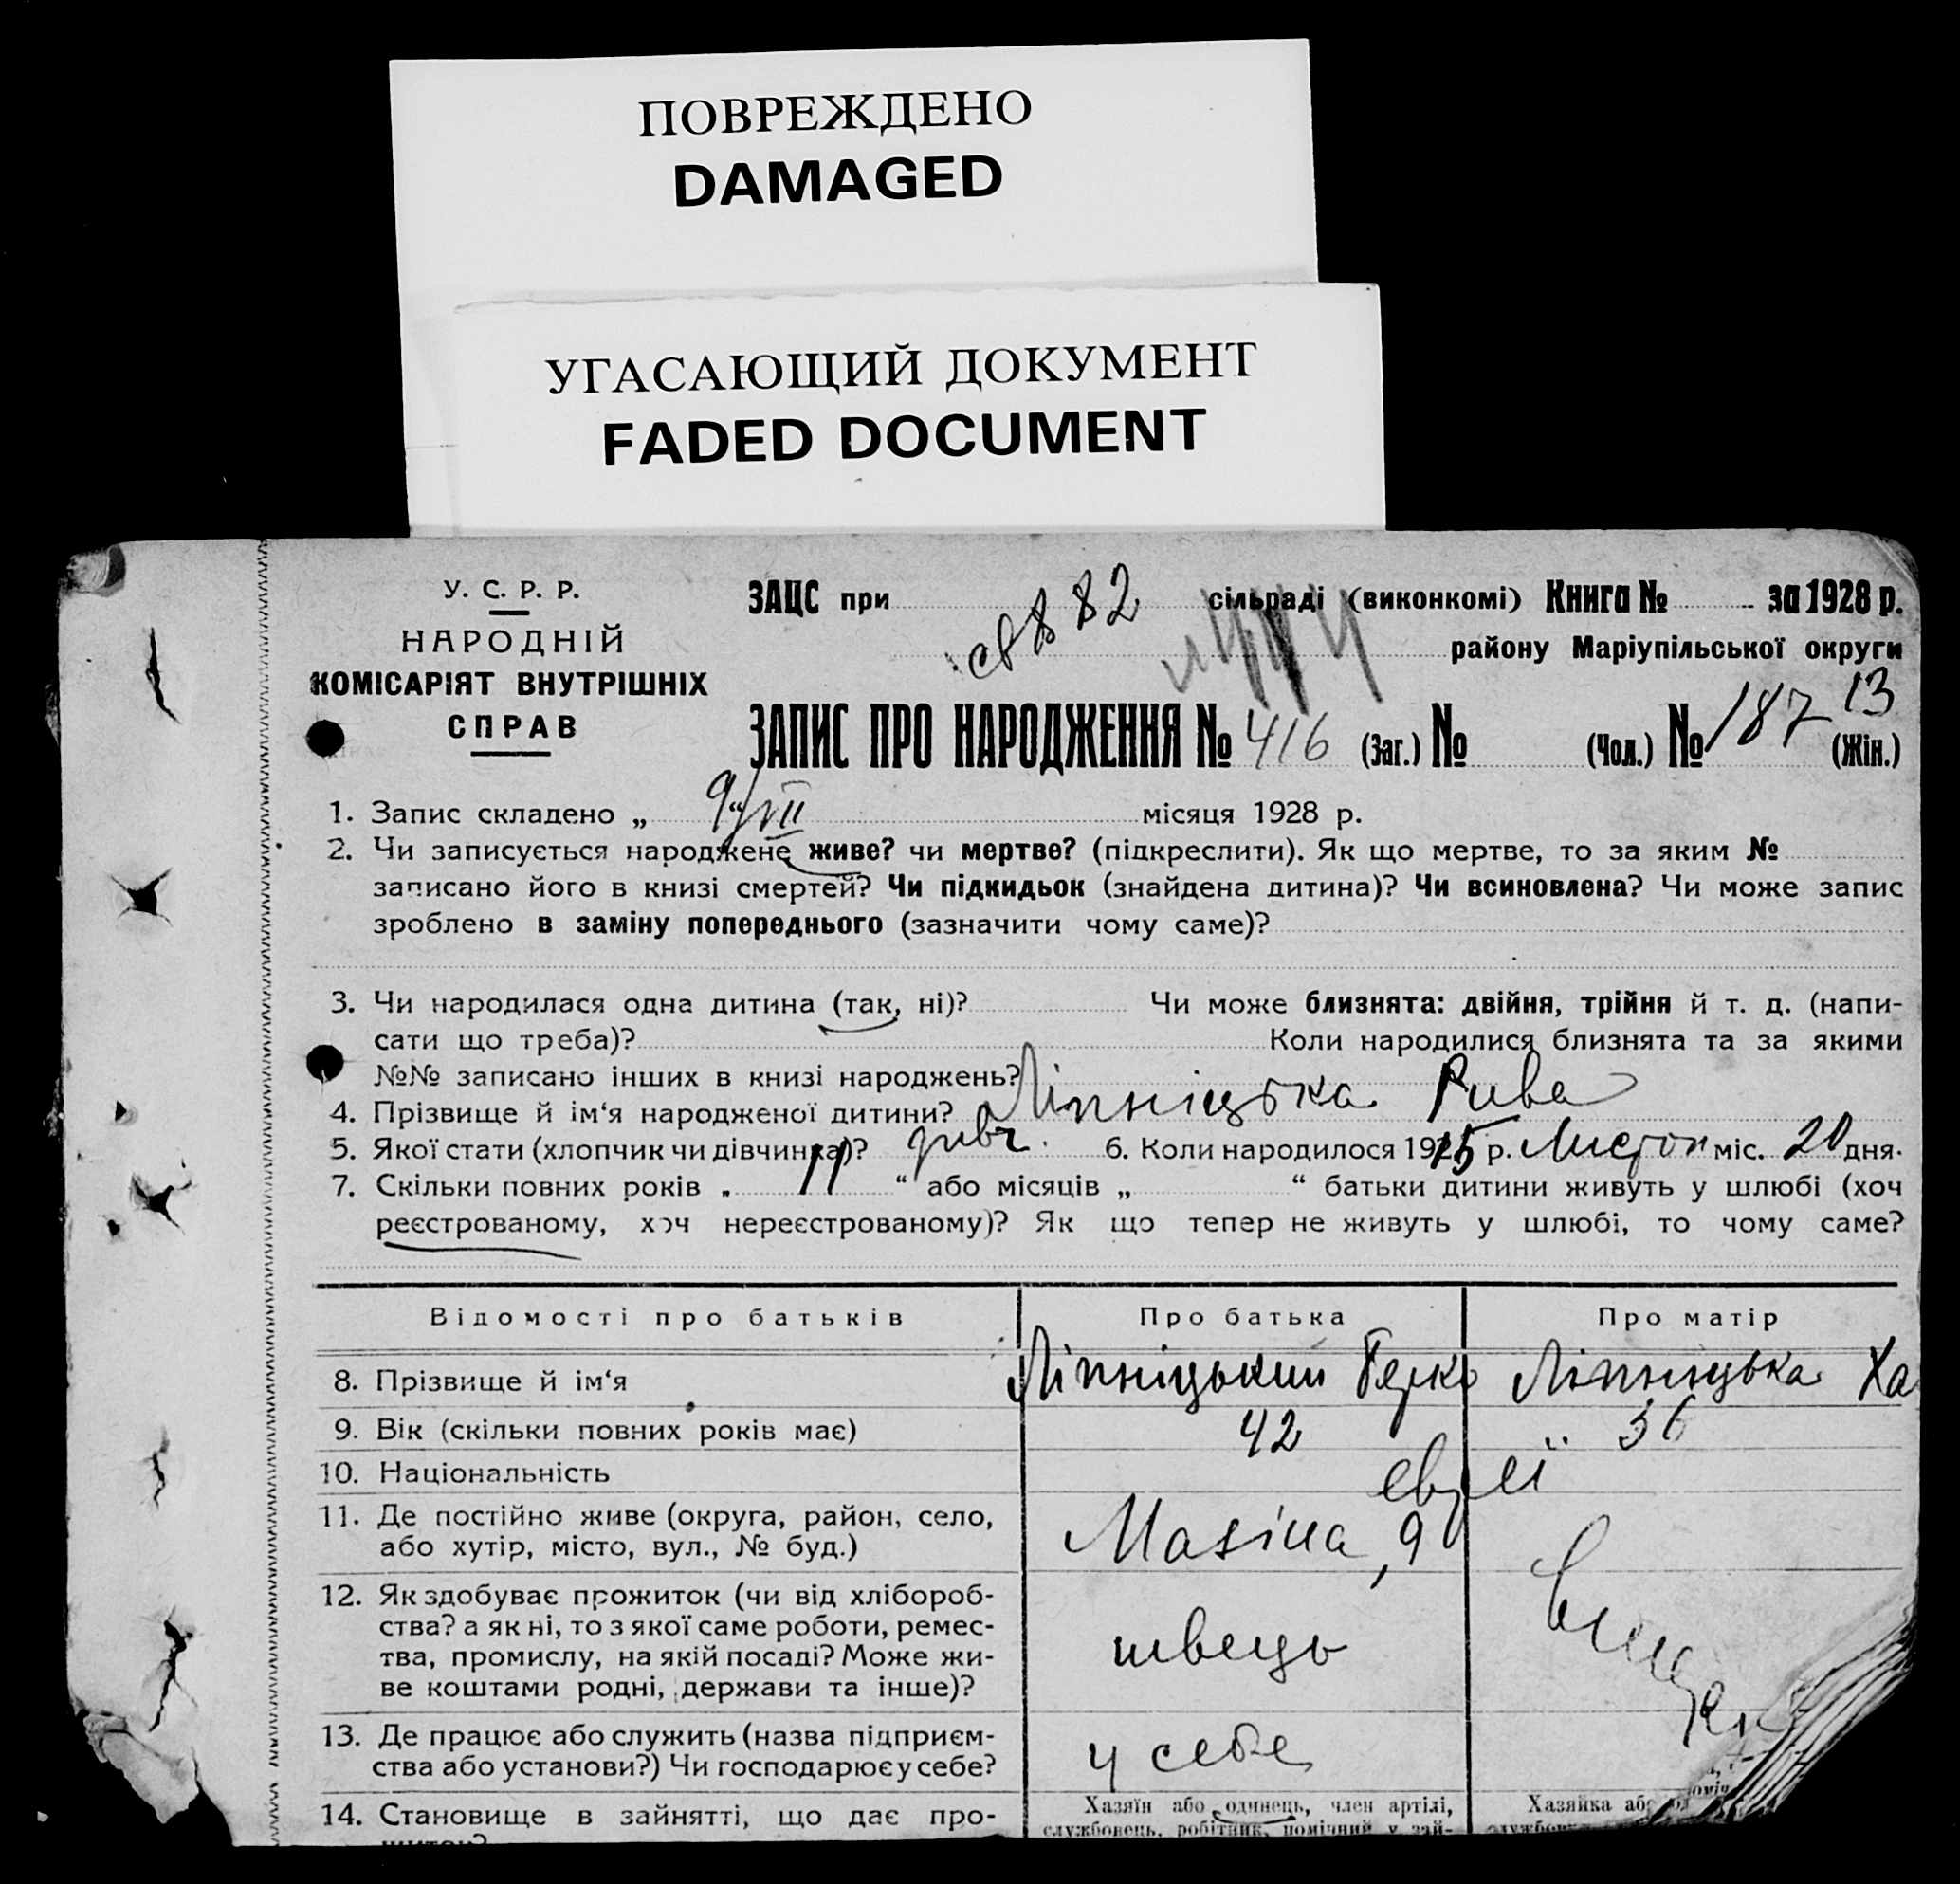 ПОВРЕЖДЕНО
DAMAGED
УГАСАЮЩИЙ ДОКУМЕНТ
FADED DOCUMENT
У. С. Р. Р.
НАРОДНІЙ
КОМІСАРІЯТ ВНУТРІШНІХ
СПРАВ
ЗАЦС при 882 сільраді (виконкомі) Книга № за 1928 р.
району Маріупільської округи
13
ЗАПИС ПРО НАРОДЖЕННЯ № 416 (Заг.) № (Чол.) № 187 (Жін.)
1. Запис складено „ 9/VII місяця 1928 р.
2. Чи записується народжене живе? чи мертве? (підкреслити). Як що мертве, то за яким №
записано його в книзі смертей? Чи підкидьок (знайдена дитина)? Чи всиновлена? Чи може запис
зроблено в заміну попереднього (зазначити чому саме)?
3. Чи народилася одна дитина (так, ні)? Чи може близнята: двійня, трійня й т. д. (напи-
сати що треба)? Коли народилися близнята та за якими
№№ записано інших в книзі народжень?
4. Прізвище й ім‘я народженої дитини? Ліпніцька Рива
5. Якої стати (хлопчик чи дівчинка)? дивч. 6. Коли народилося 1915 р. Листоп міс. 20 дня.
7. Скільки повних років „ 11 “ або місяців „ “ батьки дитини живуть у шлюбі (хоч
реєстрованому, хоч нереєстрованому)? Як що тепер не живуть у шлюбі, то чому саме?
Відомості про батьків Про батька Про матір
8. Прізвище й ім‘я Ліпніцький Берко Ліпніцька Ха
9. Вік (скільки повних років має) 42 36
10. Національність евреї
11. Де постійно живе (округа, район, село,
або хутір, місто, вул., № буд.) Мазіна, 9
12. Як здобуває прожиток (чи від хлібороб-
ства? а як ні, то з якої саме роботи, ремес-
тва, промислу, на якій посаді? Може жи-
ве коштами родні, держави та інше)? швець
13. Де працює або служить (назва підприєм-
ства або установи?) Чи господарює у себе? у себе
14. Становище в зайнятті, що дає про- Хазяїн або одинець, член артілі, Хазяйка або
службовець, робітник, помічний у зай-